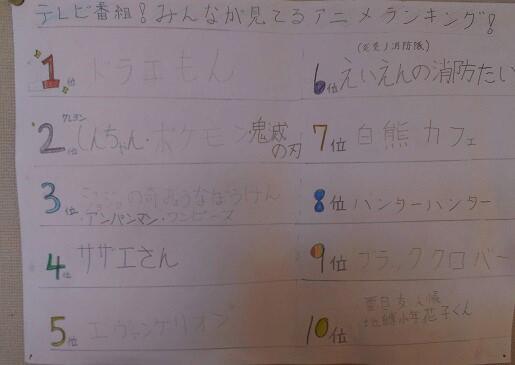 テレビ番組!みんなが見てるアニメランキング!
1位 ドラエもん
2位 クレヨンしんちゃん・ポケモン・鬼滅の刃
3位 ジョジョの奇みょうなぼうけん
・アンパンマン・ワンピース
4位 サザエさん
5位 エヴァンゲリオン
(炎炎ノ消防隊)
6位 えいえんの消防たい
7位 白熊カフェ
8位 ハンターハンター
9位 ブラッククローバー
10位 夏目友人帳
地縛少年花子くん